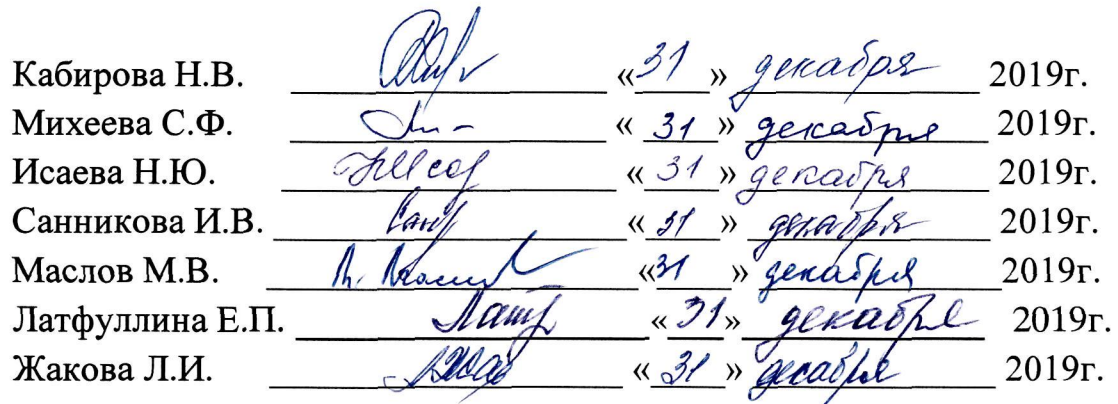 Кабирова Н.В. «31» декабря 2019г.
Михеева С.Ф. «31» декабря 2019г.
Исаева Н.Ю. «31» декабря 2019г.
Санникова И.В. «31» декабря 2019г.
Маслов М.В. «31» декабря 2019г.
Латфуллина Е.П. «31» декабря 2019г.
Жакова Л.И. «31» декабря 2019г.